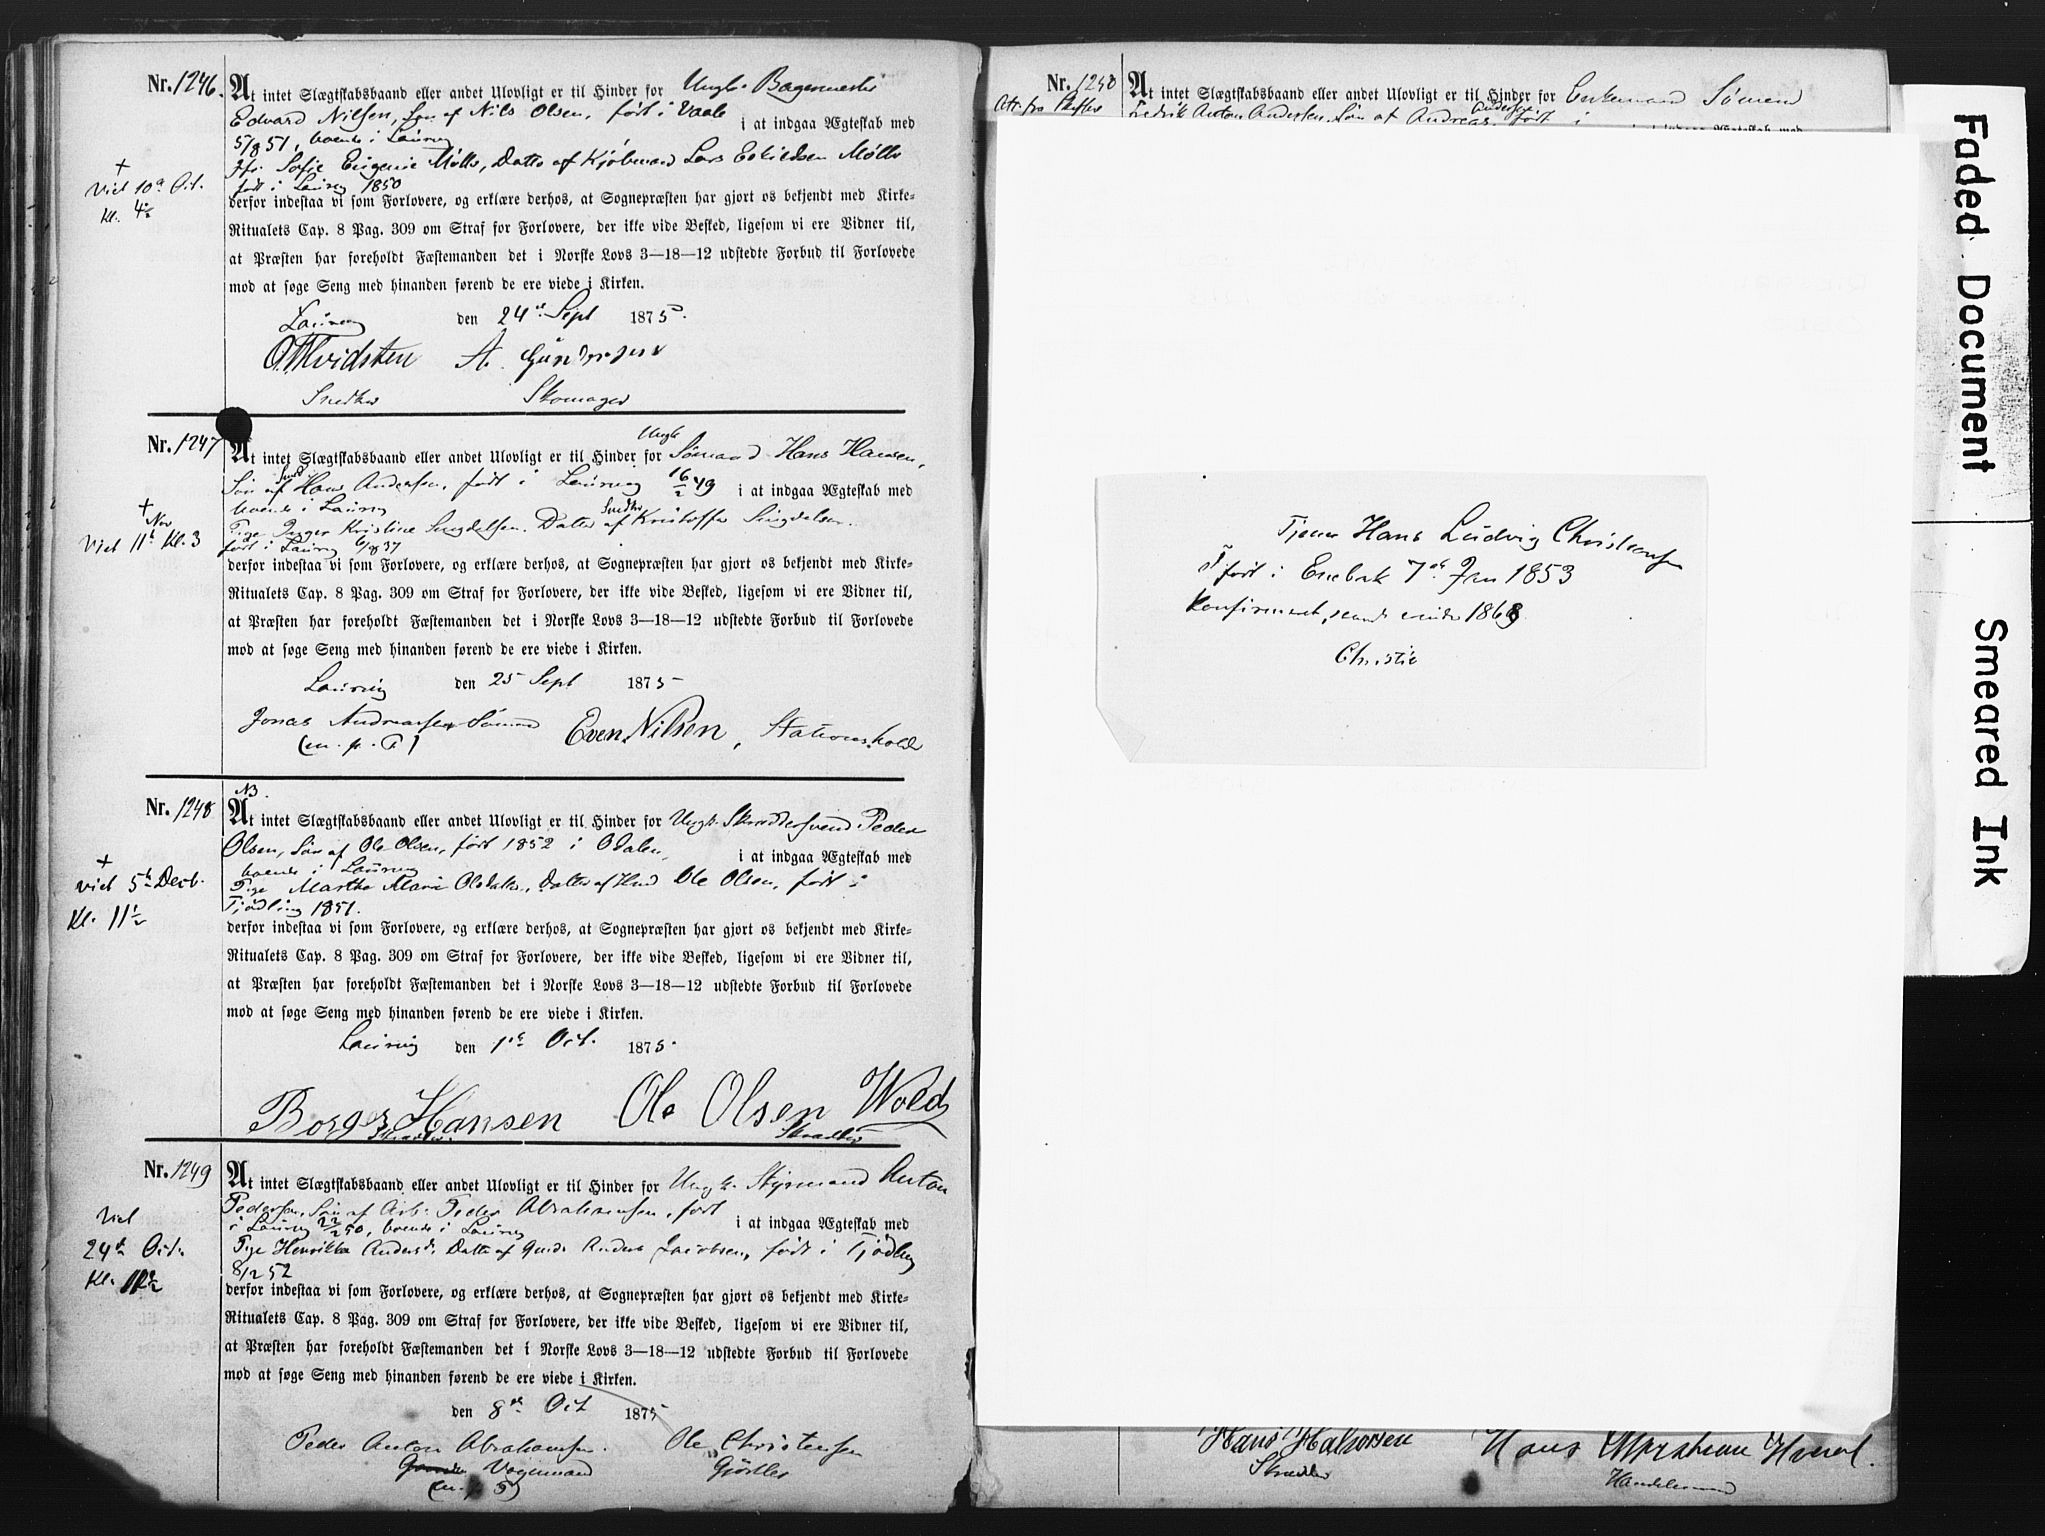 Nr. 1246. At intet Slægtskabsbaand eller andet Ulovligt er til Hinder for Ungk. Bagermester
Edvard Nilsen, Søn af Nils Olsen, født i Vaale
i at indgaa Ægteskab med
5/8 51, boende i Laurvig
Sofie Eugenie Møller, Datter af Kjøbmand Lars Eskildsen Møller
født i Laurvig 1850
+
Viet 10de Oct.
Kl. 4½
derfor indestaa vi som Forlovere, og erklære derhos, at Sognepræsten har gjort os bekjendt med Kirke-
Ritualets Cap. 8 Pag. 309 om Straf for Forlovere, der ikke vide Besked, ligesom vi ere Vidner til,
at Præsten har foreholdt Fæstemanden det i Norske Lovs 3—18—12 udstedte Forbud til Forlovede
mod at søge Seng med hinanden førend de ere viede i Kirken.
Laurvig den 24de Sept 1875.
A. Gundersen
Snedker Skomager
Nr. 1247 At intet Slægtskabsbaand eller andet Ulovligt er til Hinder for Ungk Sømand Hans Hansen,
Søn af Smed Hans Andersen, født i Laurvig 16/2 49 i at indgaa Ægteskab med
boende i Laurvig
Pige Inger Kristine Singdelsen, Datter af Snedker Kristoffer Singdelsen
født i Laurvig 6/8 37
+
Nov
Viet 11te Kl. 3
derfor indestaa vi som Forlovere, og erklære derhos, at Sognepræsten har gjort os bekjendt med Kirke-
Ritualets Cap. 8 Pag. 309 om Straf for Forlovere, der ikke vide Besked, ligesom vi ere Vidner til,
at Præsten har foreholdt Fæstemanden det i Norske Lovs 3—18—12 udstedte Forbud til Forlovede
mod at søge Seng med hinanden førend de ere viede i Kirken.
Laurvig den 25 Sept 1875
Jonas Andreassen Sømand Even Nilsen, Stationsholder
(m. p. P)
NB.
Nr. 1248 At intet Slægtskabsbaand eller andet Ulovligt er til Hinder for Ungk. Skræddersvend Peder
Olsen, Søn af Ole Olsen, født 1852 i Odalen, i at indgaa Ægteskab med
boende i Laurvig
Pige Marthe Marie Olsdatter, Datter af Husm Ole Olsen, født i
Tjødling 1851.
+
viet 5te Decb.
Kl. 11½
derfor indestaa vi som Forlovere, og erklære derhos, at Sognepræsten har gjort os bekjendt med Kirke-
Ritualets Cap. 8 Pag. 309 om Straf for Forlovere, der ikke vide Besked, ligesom vi ere Vidner til,
at Præsten har foreholdt Fæstemanden det i Norske Lovs 3—18—12 udstedte Forbud til Forlovede
mod at søge Seng med hinanden førend de ere viede i Kirken.
Laurvig den 1ste Oct. 1875.
Borger Hansen Ole Olsen Wold
Skrædder. Skrædder
Nr. 1249 At intet Slægtskabsbaand eller andet Ulovligt er til Hinder for Ungk. Styrmand Anton
Pedersen, Søn af Arb. Peder Abrahamsen, født
i at indgaa Ægteskab med
i Laurvig 22/2 50, boende i Laurvig
Pige Henrikke Andersd. Datter af Gmd. Anders Jacobsen, født i Tjødling
8/12 52
Viet
24de Oct.
Kl. 11½
derfor indestaa vi som Forlovere, og erklære derhos, at Sognepræsten har gjort os bekjendt med Kirke-
Ritualets Cap. 8 Pag. 309 om Straf for Forlovere, der ikke vide Besked, ligesom vi ere Vidner til,
at Præsten har foreholdt Fæstemanden det i Norske Lovs 3—18—12 udstedte Forbud til Forlovede
mod at søge Seng med hinanden førend de ere viede i Kirken.
den 8de Oct 1875
Peder Anton Abrahamsen. Ole Christensen
Vognmand Gjørtler
Nr. 1250 At intet Slægtskabsbaand eller andet Ulovligt er til Hinder for Enkemand Sømand
Fredrik Anton Andersen, Søn af Andreas Andersen født i
Tjener Hans Ludvig Christiansen
født i Enebak 7de Jan 1853
Konfirmeret, sands. vinter 1868
Christie
Hans Halvorsen Hans Christian Hvaal.
Skrædder Handelsmand
Faded Document
Smeared Ink